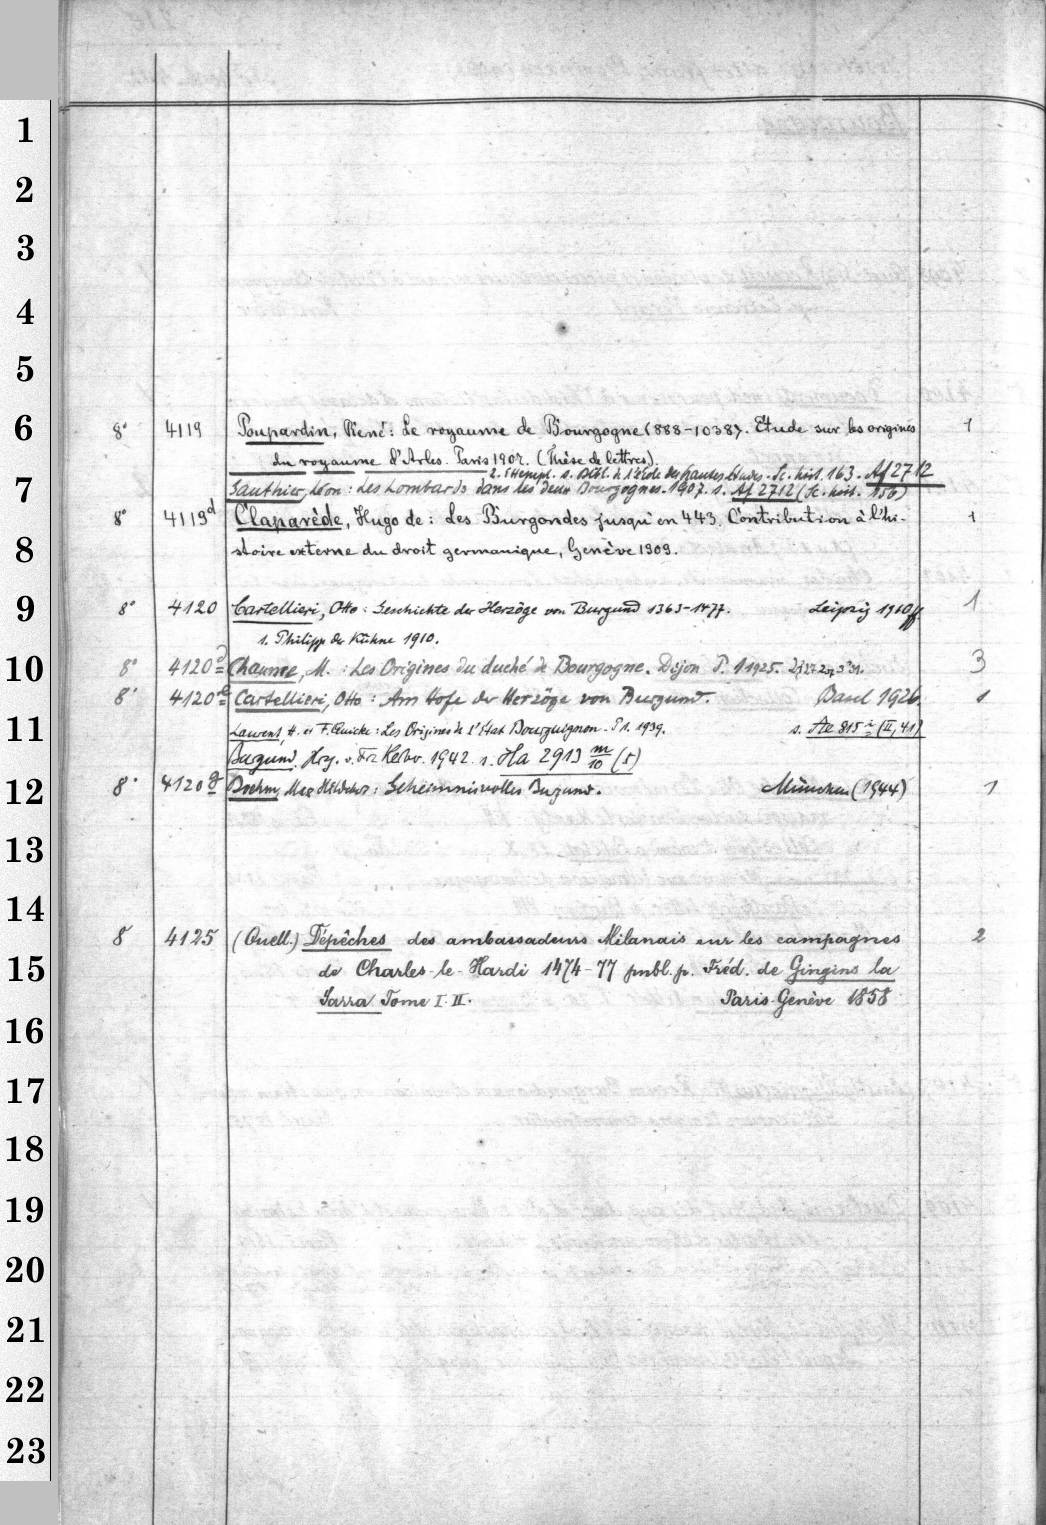 1
2
3
4
5
6
8° 4119 Poupardin, René: Le royaume de Bourgogne (888-1038). Etude sur les origines 1
du royaume d'Arles. Paris 1907. (Thèse de lettres).
2. Exempl. s. Bibl. de l'école des hautes Etudes. Sc. hist. 163. Af 2712
7
Gauthier, Léon: Les Lombards dans les deux Bourgognes. 1907. s. Af 2712 (Sc. hist. 156)
8° 4119d Claparède, Hugo de: Les Burgondes jusqu'en 443. Contribution à l'hi- 1
8
stoire externe du droit germanique, Genève 1909.
9
8° 4120 Cartellieri, Otto: Geschichte der Herzöge von Burgund 1363-1477. Leipzig 1910ff 1
1. Philipp der Kühne 1910.
10
8° 4120 Chaume, M.: Les Origines du duché de Bourgogne. Dijon P. 1 1925. 3
8° 4120e Cartellieri, Otto: Am Hofe der Herzöge von Burgund. Basel 1926. 1
11
Laurent, H. et F. Quicke: Les Origines de l'Etat Bourguignon. P 1. 1939. s. Ae 815 i (II, 41)
Burgund. Hrg. v. Frz Kerber. 1942. s. Ha 2913 m/10 (5)
12
8° 4120g Boehm, Max Hildebert: Geheimnisvolles Burgund. München (1944) 1
13
14
8° 4125 (Quell.) Dépêches des ambassadeurs Milanais sur les campagnes 2
15
de Charles-le-Hardi 1474-77 publ. p. Fréd. de Gingins la
Sarra Tome I. II. Paris-Genève 1858
16
17
18
19
20
21
22
23